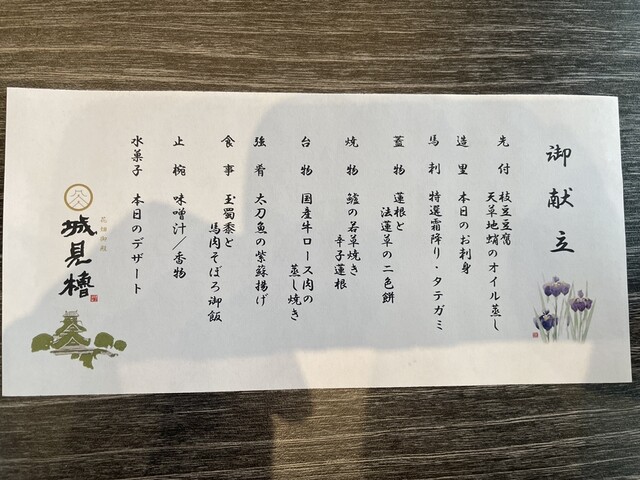 御献立
先付 枝豆豆腐
天草地蛸のオイル蒸し
造里 本日のお刺身
馬刺 特選霜降り・タテガミ
蓋物 蓮根と
法蓮草の二色餅
焼物 鱸の若草焼き
辛子蓮根
台物 国産牛ロース肉の
蒸し焼き
強肴 太刀魚の紫蘇揚げ
食事 玉蜀黍と
馬肉そぼろ御飯
止椀 味噌汁/香物
水菓子 本日のデザート
花畑御殿
城見櫓